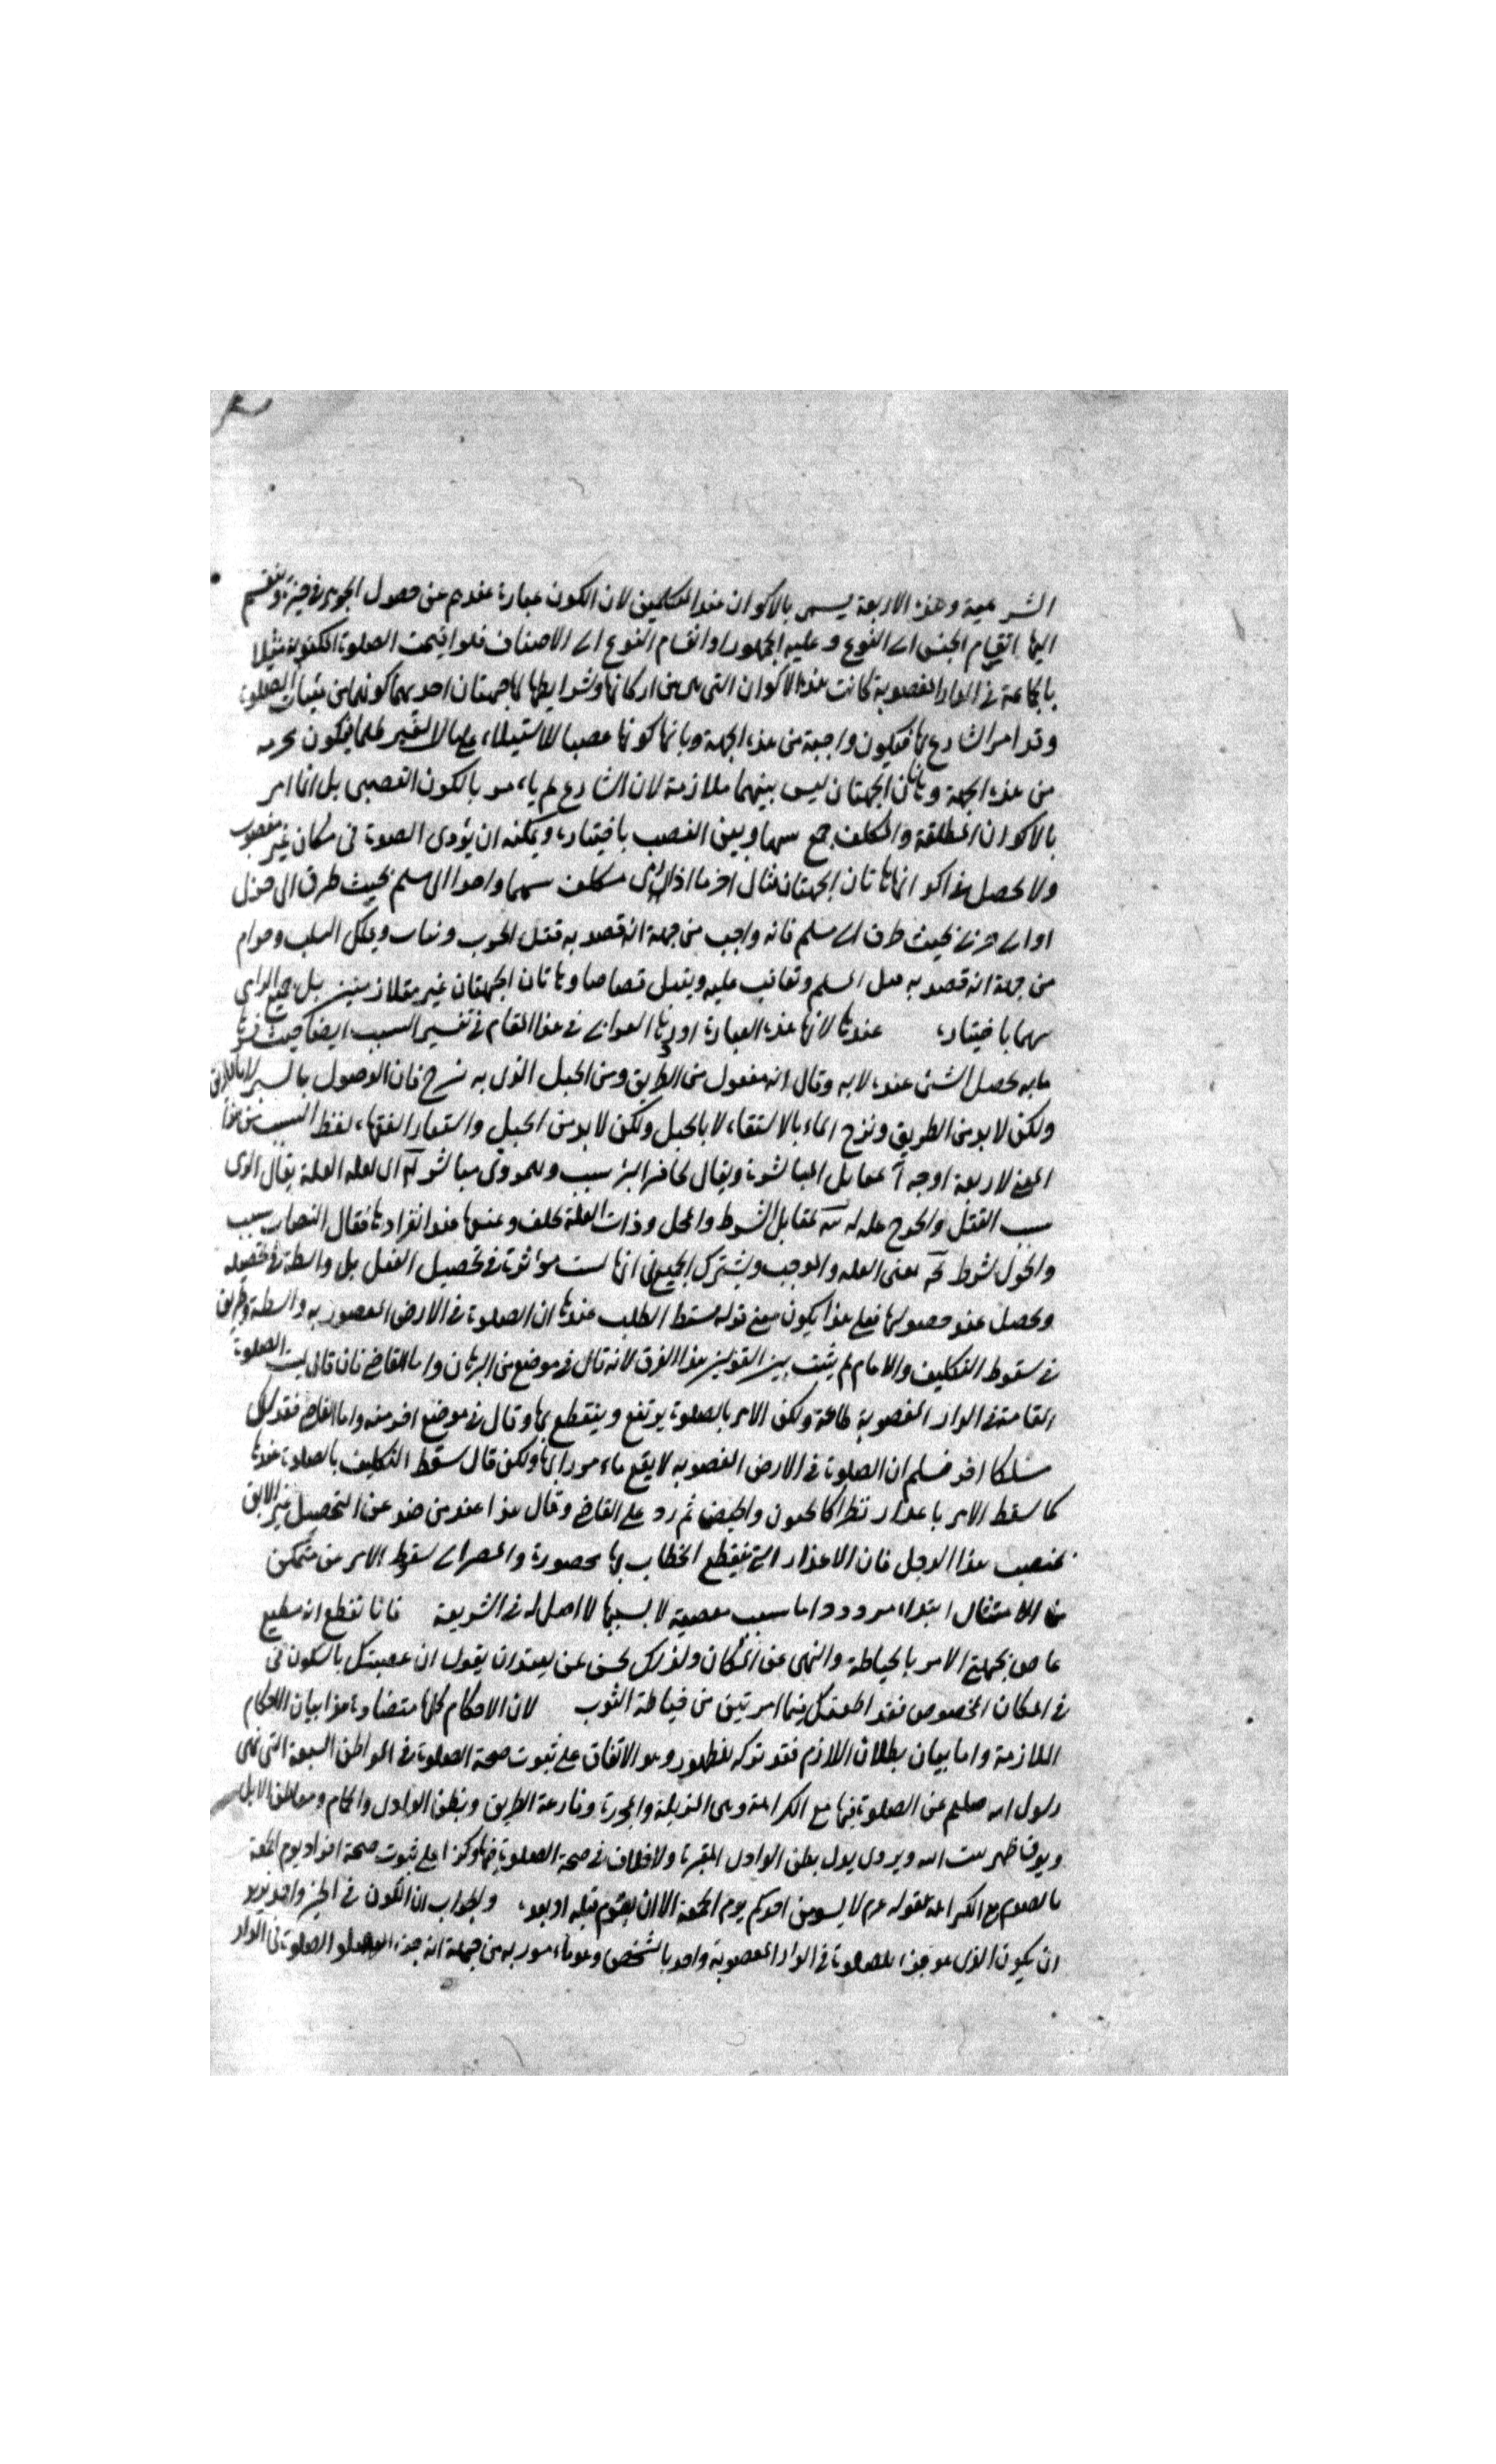 الشرعية وهذه الاربعة يسمى بالاكوان عند المتكلمين لان الكون عبارة عندهم عن حصول الجوهر في حيزه وتنقسم
اليها انقسام الجنس الى النوع وعليه الجمهور او انقسام النوع الى الاصناف فلو اقيمت الصلوة المكتوبة مثلا
بالجماعة في الدار المغصوبة كانت هذه الاكوان التي هي من اركانها وشرايطها لها جهتان احديهما كونها من الصلوة
وقد امر الشارع بها فيكون واجبة من هذه الجهة وثانيها كونها غصبا للاستيلاء على مال الغير ظلما فيكون محرمه
من هذه الجهة وهاتان الجهتان ليس بينهما ملازمة لان الشارع لم يامر بالكون الغصبي بل انما امر
بالاكوان المطلقة والمكلف جمع بينهما وبين الغصب باختياره ويمكنه ان يؤدى الصلوة في مكان غير مغصوب
ولا يحصل في اكوانها هاتان الجهتان مثال اخر ما اذا رمى مكلف سهما واحدا الى مسلم بحيث طرق الى
او الى حربي بحيث طرق الى مسلم فانه واجب من جهة انه قصد به قتل الحرب ويثاب ويملك السلب وحرام
من جهة انه قصد به قتل المسلم ويعاقب عليه ويقتل قصاصا وهاتان الجهتان غير متلازمتين بل جمع الرامي
بينهما باختياره عندها لا بها هذه العبارة اوردها الغزالي في هذا المقام في تفسير السبب ايضا حيث
ما به يحصل الشئ عنده لا به وقال انه منقول من الطريق ومن الحبل الذي به نزح فان الوصول بالسير لا بالطريق
ولكن لا بد من الطريق ونزح الماء بالاستقاء لا بالحبل ولكن لا بد من الحبل واستعار الفقهاء لفظ السبب من هذا
المعنى لاربعة اوجه ا مقابل المباشرة ويقال لحافر البئر سبب وللمردى مباشر علة العلة يقال الرمى
سبب القتل والجرح علة له مقابل الشرط والمحل وذات العلة عند انفرادها فقال النصاب سبب
والحول شرط بمعنى العلة والموجب ويشترك الجميع في انها ليست مؤثرة في تحصيل الفعل بل واسطة في تحصيله
ويحصل عند حصولها فعلى هذا يكون معنى قوله سقط الطلب عندها ان الصلوة في الارض المغصوبه واسطة وطريق
في سقوط التكليف والامام لم يثبت بين القولين هذا الفرق لانه قال في موضع من البرهان واما القاضي فان قال ليست الصلوة
القامة في الدار المغصوبة طاعة ولكن الامر بالصلوة يرتفع وينقطع بها وقال في موضع اخر منه واما القاضي فقد سلك
مسلكا اخر فسلم ان الصلوة في الارض المغصوبه لا يقع مامورا بها ولكن قال سقط التكليف بالصلوة عندها
كما سقط الامر باعذار تطرأ كالجنون والحيض ثم رد على القاضي وقال هذا عندي حيد عن التحصيل غير لايق
بمنصب هذا الرجل فان الاعذار التي ينقطع الخطاب بها محصورة والمصير الى سقوط الامر من متمكن
من الامتثال ابتداء مردود اما بسبب معصية لا لسببها لا اصل له في الشريعة فانا نقطع انه مطيع
عاص بجهتي الامر بالخياطة والنهى عن المكان ولذلك يحسن من العبد ان يقول ان عصيتك بالسكون في
في المكان المخصوص فقد اطعتك فيما امرتني من خياطة الثوب لان الاحكام كلها متضادة هذا بيان الاحكام
الملازمة واما بيان بطلان اللازم فقد تركه لظهوره وهو الاتفاق على ثبوت صحة الصلوة في المواطن السبعة التي نهى
رسول الله صلعم عن الصلوة فيها مع الكراهة وهى المزبلة والمجزرة وقارعة الطريق وبطن الوادى والحمام ومعاطن الابل
وفوق ظهر بيت الله ويروى بدل بطن الوادى المقبرة ولا خلاف في صحة الصلوة فيها وكذا على ثبوت صحة افراد يوم الجمعة
بالصوم مع الكراهة لقوله عم لا يصومن احدكم يوم الجمعة الا ان يصوم قبله او بعده والجواب ان الكون في الحيز واحد يريد
ان يكون الذي هو جزء الصلوة في الدار المغصوبة واحد بالشخص وهو مامور به من جهة انه جزء الصلوة في الدار